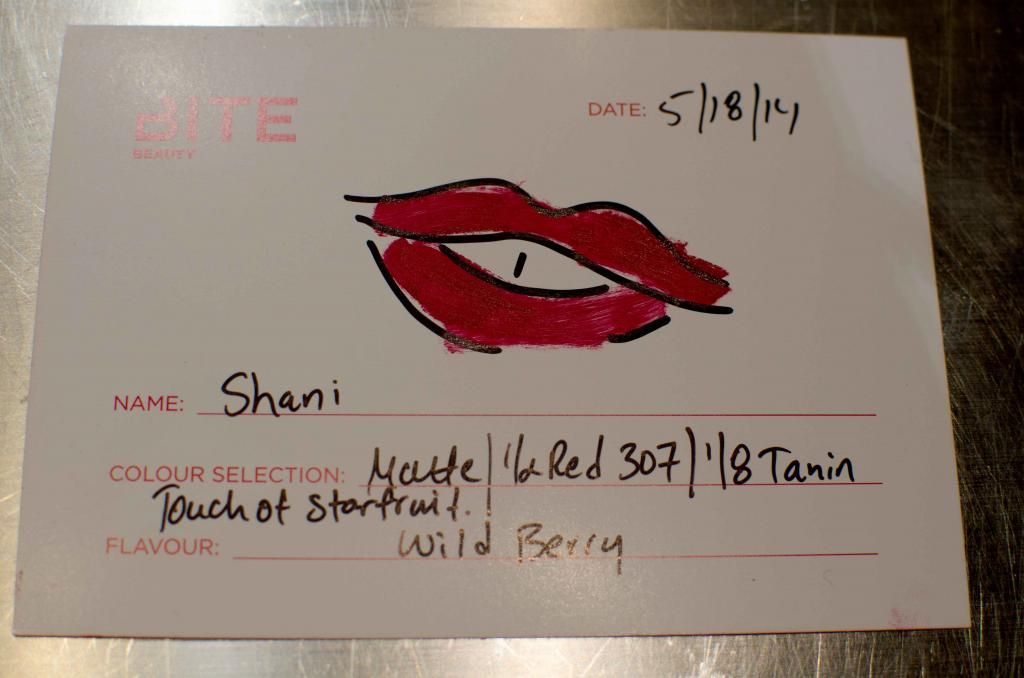 BITE
BEAUTY
DATE: 5/18/14
NAME: Shani
COLOUR SELECTION: Matte/ 1/2 Red 307/ 1/8 Tanin
Touch of Starfruit.
FLAVOUR: Wild Berry